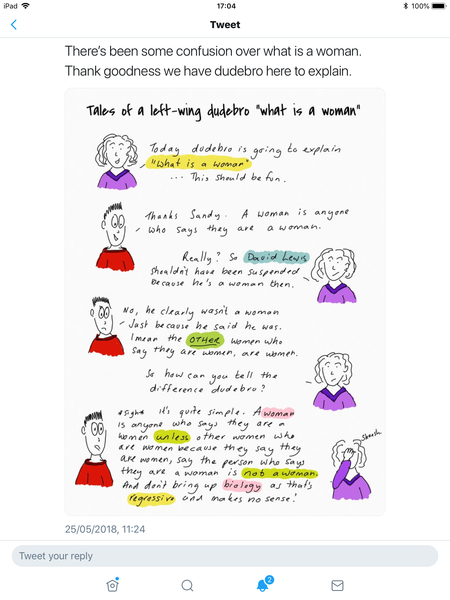 iPad
17:04
100%
Tweet
There's been some confusion over what is a woman.
Thank goodness we have dudebro here to explain.
Tales of a left-wing dudebro "what is a woman"
Today dudebro is going to explain
"What is a woman"
... This should be fun.
Thanks Sandy. A woman is anyone
who says they are a woman.
Really? So David Lewis
shouldn't have been suspended
because he's a woman then.
No, he clearly wasn't a woman
Just because he said he was.
I mean the OTHER women who
say they are women, are women.
So how can you tell the
difference dudebro?
*sigh* it's quite simple. A woman
is anyone who says they are a
women unless other women who
are women because they say they
are women, say the person who says
they are a woman is not a woman.
And don't bring up biology as that's
regressive and makes no sense!
25/05/2018, 11:24
Tweet your reply
2